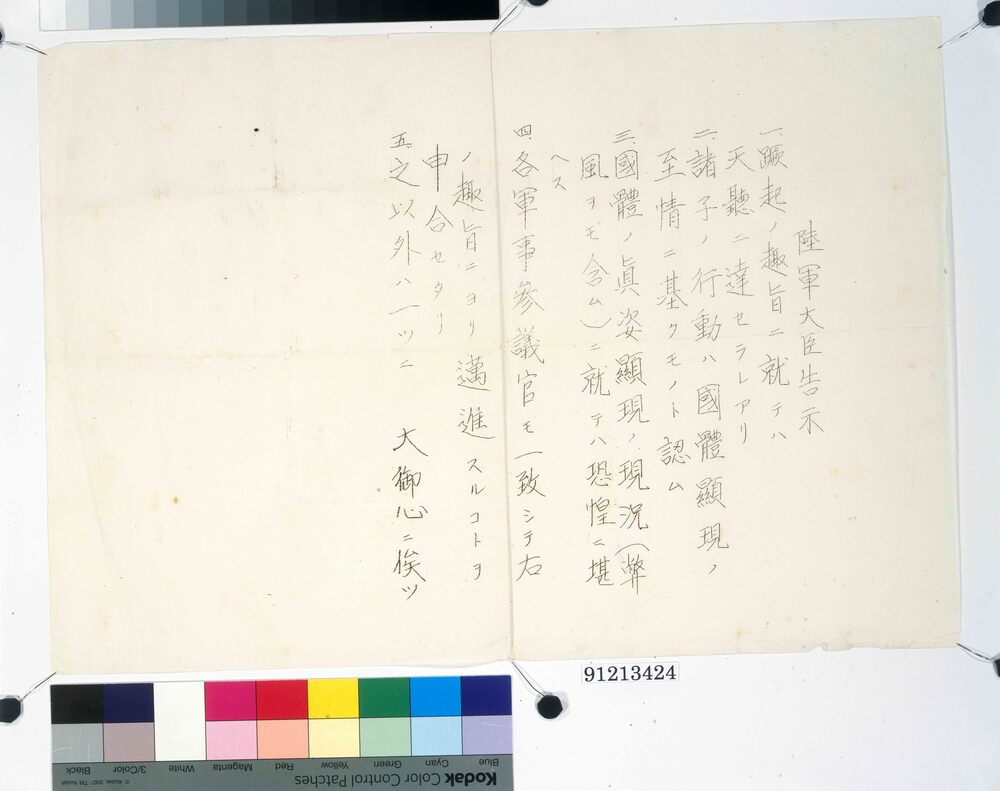 陸軍大臣告示
一、蹶起ノ趣旨ニ就テハ
天聽ニ達セラレアリ
二、諸子ノ行動ハ國體顯現ノ
至情ニ基クモノト認ム
三、國體ノ眞姿顯現ノ現況(弊
風ヲモ含ム)ニ就テハ恐惶ニ堪
ヘス
四、各軍事參議官モ一致シテ右
ノ趣旨ニヨリ邁進スルコトヲ
申合セタリ
五、之以外ハ一ツニ 大御心ニ俟ツ
91213424
Kodak Color Control Patches
© Kodak, 2007 TM: Kodak
Blue
Cyan
Green
Yellow
Red
Magenta
White
3/Color
Black